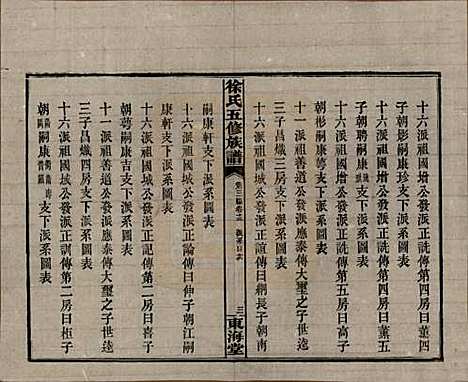 十六派祖國增公發派正詵傳第四房曰董四
子聘嗣康珍支下派系圖表
十六派祖國增公發派正詵傳第四房曰董五
朝彬嗣康雙支下派系圖表
十六派祖國增公發派正詵傳第五房曰高子
十一派祖善道公發派應泰傳大璽之子世遠
三子昌熾三房支下派系圖表
十六派祖國城公發派正誼傳曰綱長子朝南
徐氏五修族譜
三
東海堂
嗣康軒支下派系圖表
十六派祖國城公發派正論傳曰伸子朝江嗣
康軒支下派系圖表
十六派祖國城公發派正記傳曰奇子
朝蕚嗣康吉支下派系圖表
十一派祖善道公發派應傳大璽之子世逵
三子昌熾四房支下派系圖表
十六派祖國城公發派正詰傳第二房曰喜子
支下派系圖表